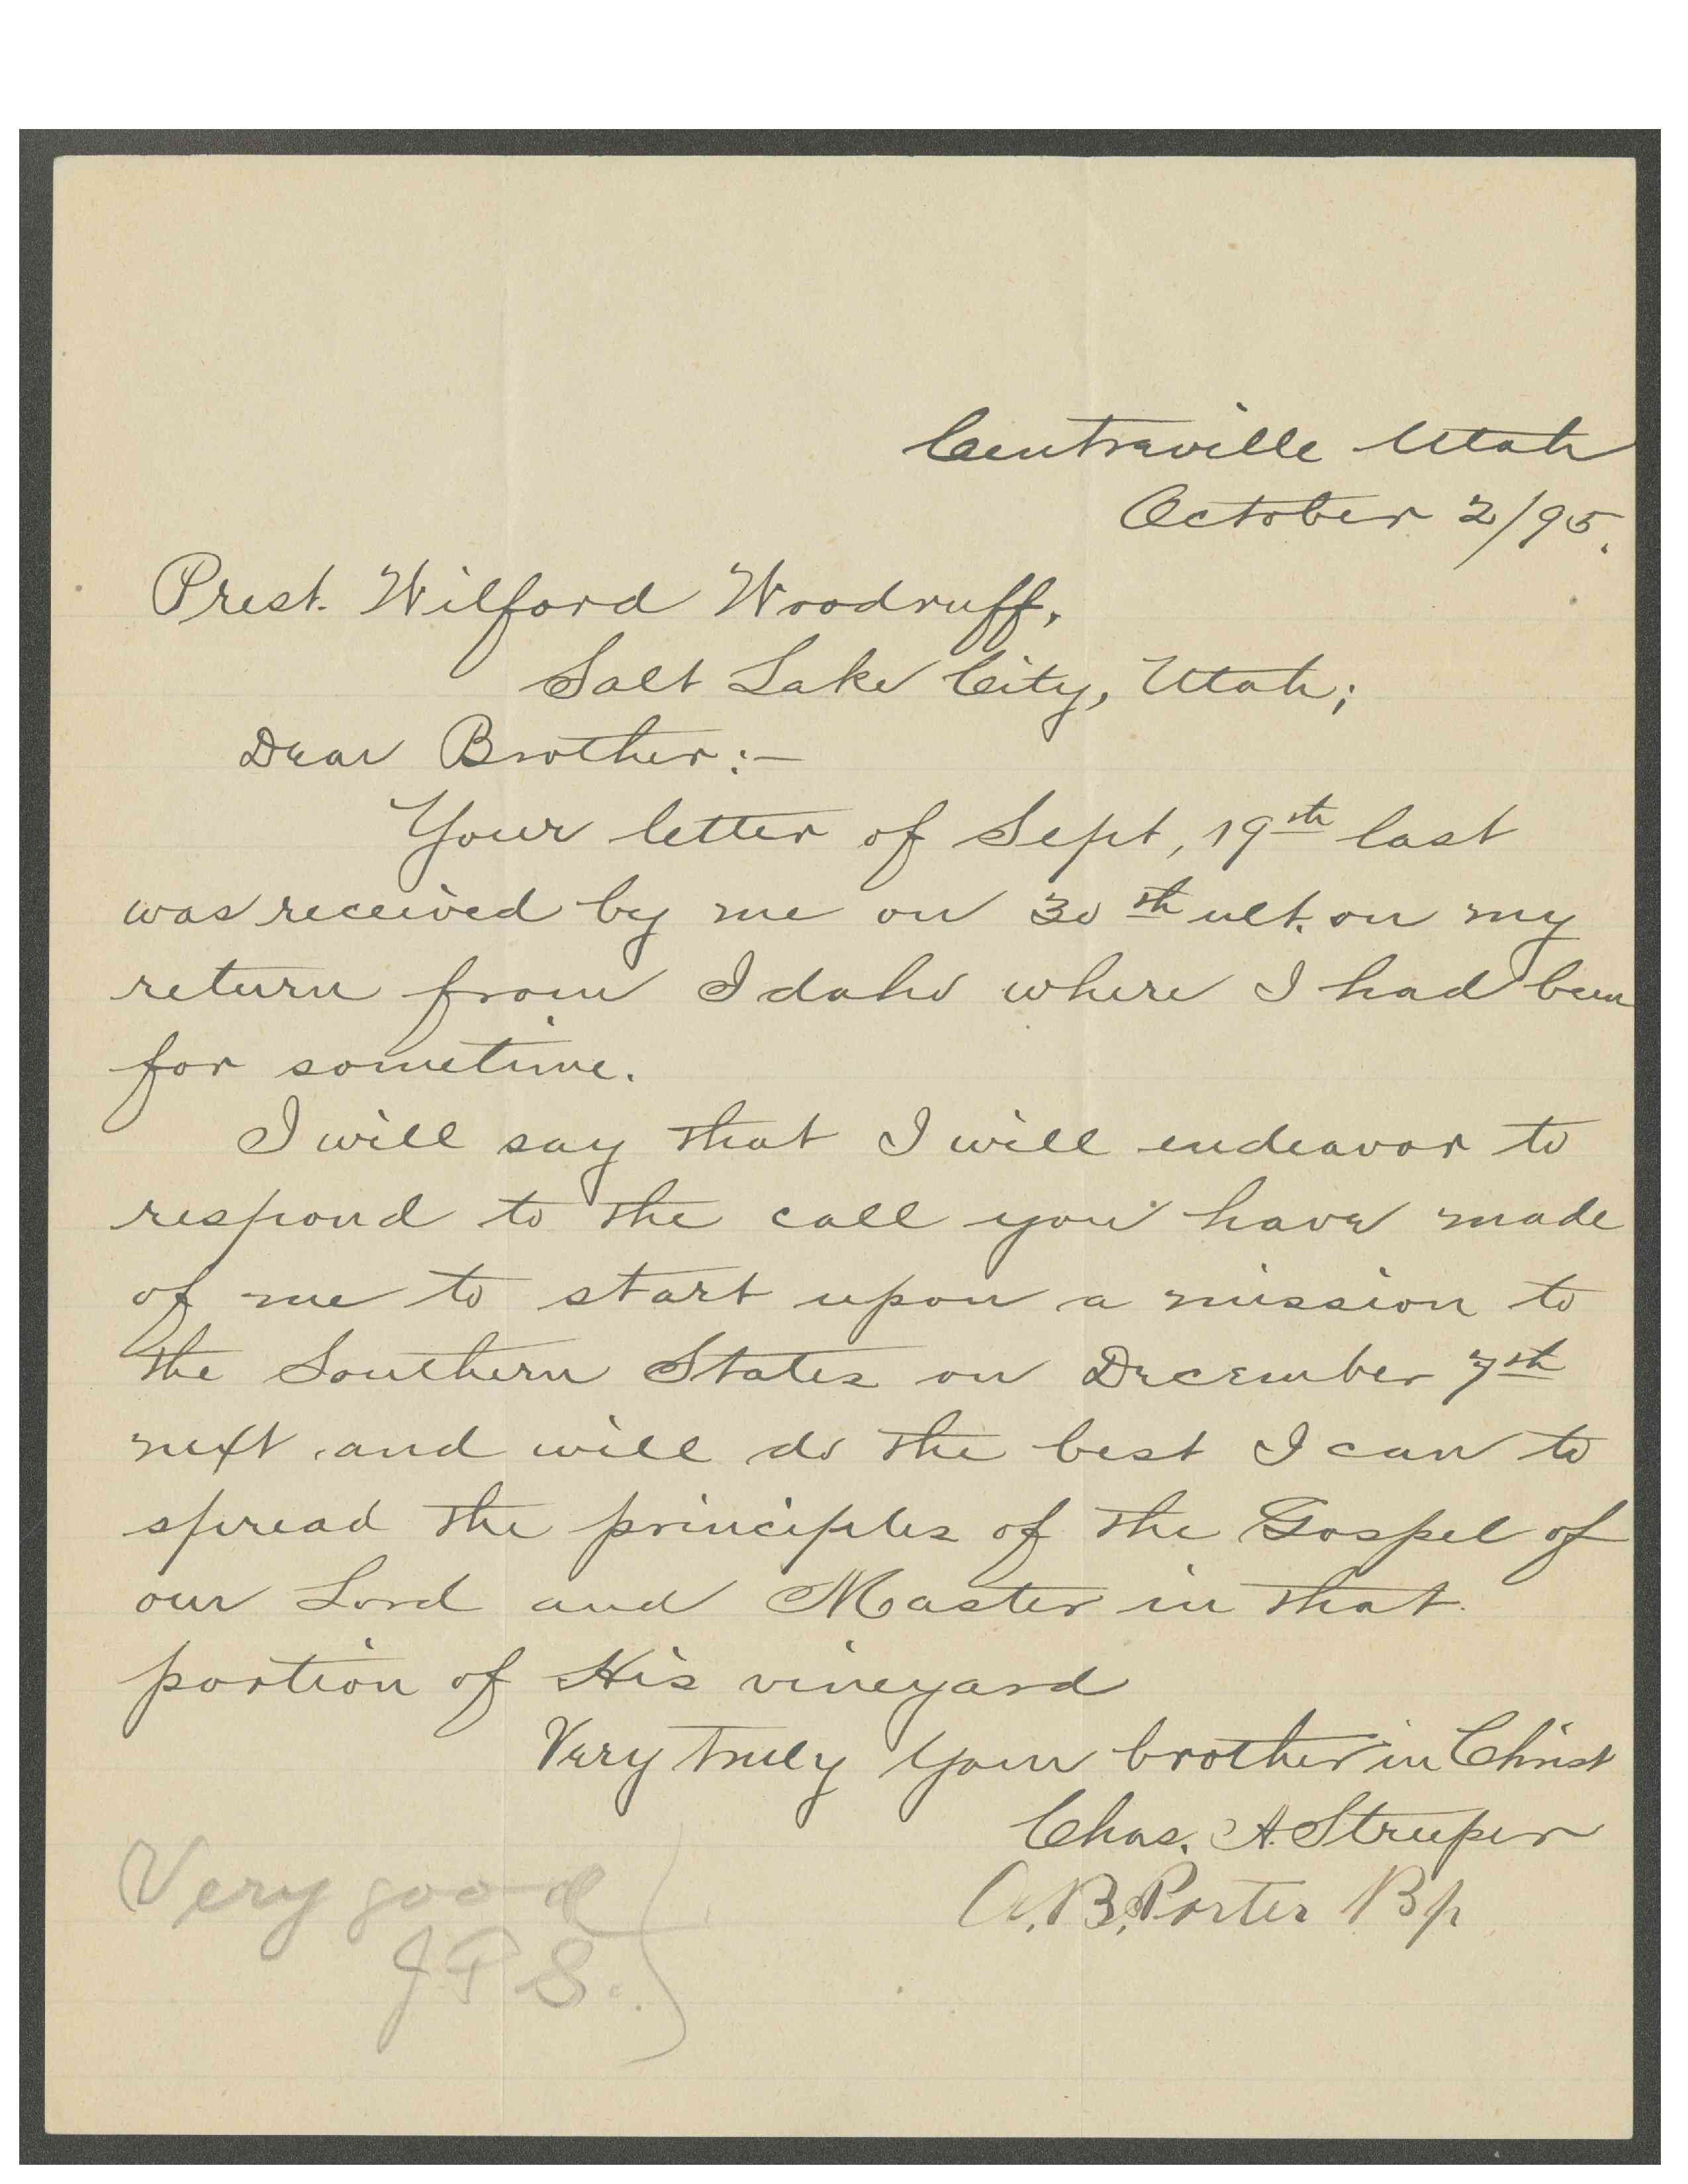 Centraville Utah
October 2/95.
Prest. Wilford Woodruff,
Salt Lake City, Utah;
Dear Brother:—
Your letter of Sept, 19th last
was received by me on 30th ult. on my
return from Idaho where I had been
for sometime.
I will say that I will endeavor to
respond to the call you have made
of me to start upon a mission to
the Southern States on December 7th
next and will do the best I can to
spread the principles of the Gospel of
our Lord and Master in that
portion of His vineyard
Very truly your brother in Christ
Chas. A. Struper
A. B. Porter Bp
Very good
J F S.